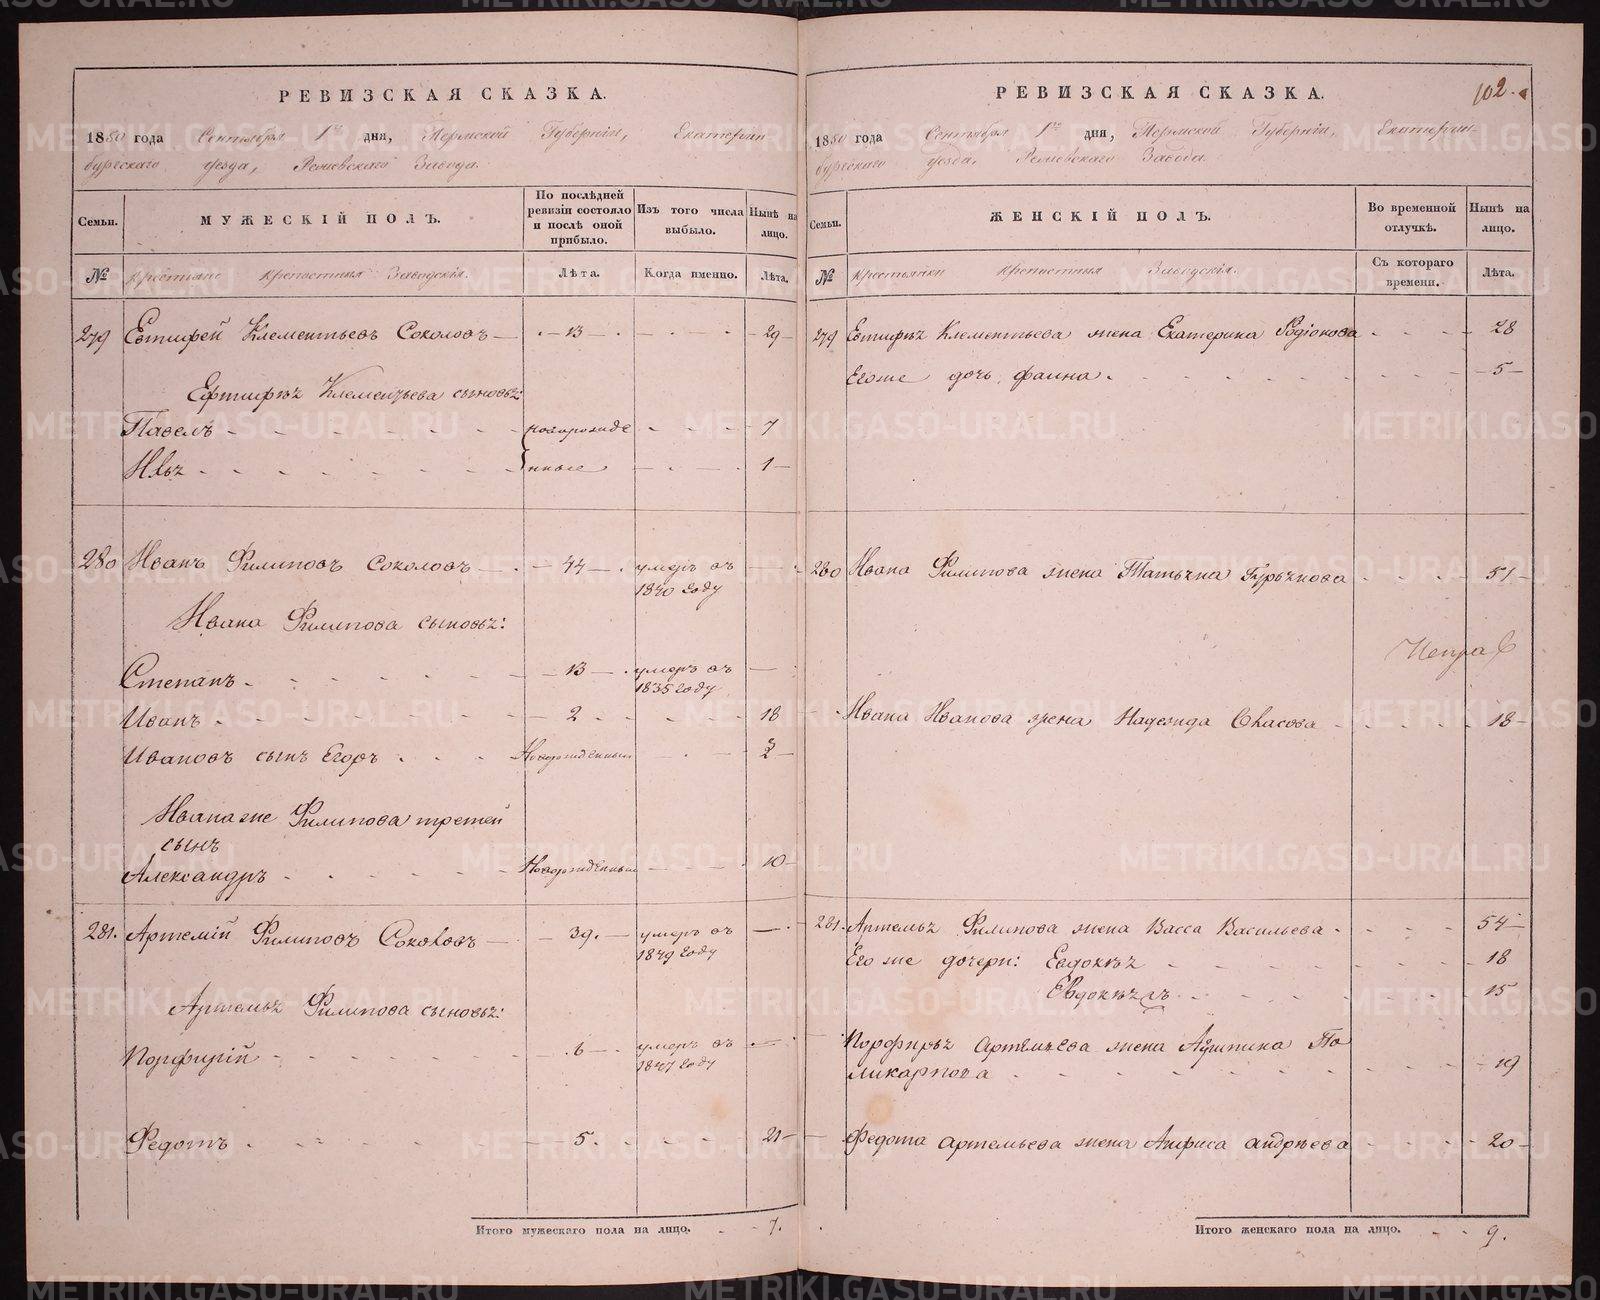 РЕВИЗСКАЯ СКАЗКА.
1850 года Сентября 1го дня, Пермской Губерніи, Екатерин-
бургскаго уезда, Завода.
Семьи.
МУЖЕСКІЙ ПОЛЪ.
По послѣдней ревизіи состояло и послѣ оной прибыло.
Изъ того числа выбыло.
Нынѣ на лицо.
№
Крестьяне крепостныя Заводскія.
Лѣта.
Когда именно.
Лѣта.
279 Евтифей Клементьевъ Соколовъ 13 29
Ефтифѣя Клементьева сыновья:
Павелъ новорожде 7
Илья нные 1
280 Иванъ Филиповъ Соколовъ 44 умеръ въ
1840 году
Ивана Филипова сыновья:
Степанъ 13 умеръ въ
1835 году
Иванъ 2 18
Ивановъ сынъ Егоръ Новорожденный 2
Ивана же Филипова третей
сынъ
Александръ Новорожденный 10
281. Артемій Филиповъ Соколовъ 39. умеръ въ
1849 году
Артемья Филипова сыновья:
Порфирій 6 умеръ въ
1847 году
Федотъ 5. 21
Итого мужескаго пола на лицо. 7.
102.
РЕВИЗСКАЯ СКАЗКА.
1850 года Сентября 1го дня, Пермской Губерніи, Екатерин-
бургскаго уезда, Завода.
Семьи.
ЖЕНСКІЙ ПОЛЪ.
Во временной отлучкѣ.
Нынѣ на лицо.
№
Крестьянки крепостныя Заводскія.
Съ котораго времени.
Лѣта.
279 Евтифѣя Клементьева жена Екатерина Родіонова 28
Его же дочь Фаина 5
280 Ивана Филипова жена Татьяна Гурьянова 51
Ивана Иванова жена Надежда Власова 18
281. Артемья Филипова жена Васса Васильева 54
Его же дочери: Евдокѣя 18
Евдокѣя 15
Порфирья Артемьева жена По
ликарпова 19
Федота Артемьева жена Анфиса Андрѣева 20
Итого женскаго пола на лицо. 9.
METRIKI.GASO-URAL.RU